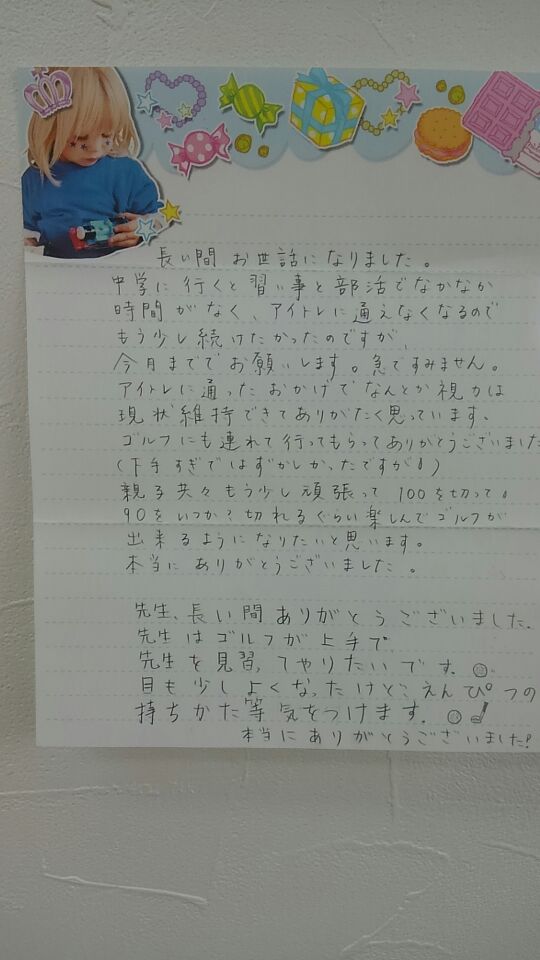 長い間 お世話になりました。
中学に行くと習い事と部活でなかなか
時間がなく、アイトレに通えなくなるので
もう少し続けたかったのですが、
今月まででお願いします。急ですみません。
アイトレに通ったおかげでなんとか視力は
現状維持できてありがたく思っています。
ゴルフにも連れて行ってもらってありがとうございました
(下手すぎではずかしかったですが!)
親子共々もう少し頑張って 100を切って!
90をいつか?切れるぐらい楽しんでゴルフが
出来るようになりたいと思います。
本当にありがとうございました。
先生、長い間ありがとうございました.
先生はゴルフが上手で
先生を見習ってやりたいです.
目も少しよくなったけど、えんぴつの
持ちかた等気をつけます.
本当にありがとうございました!